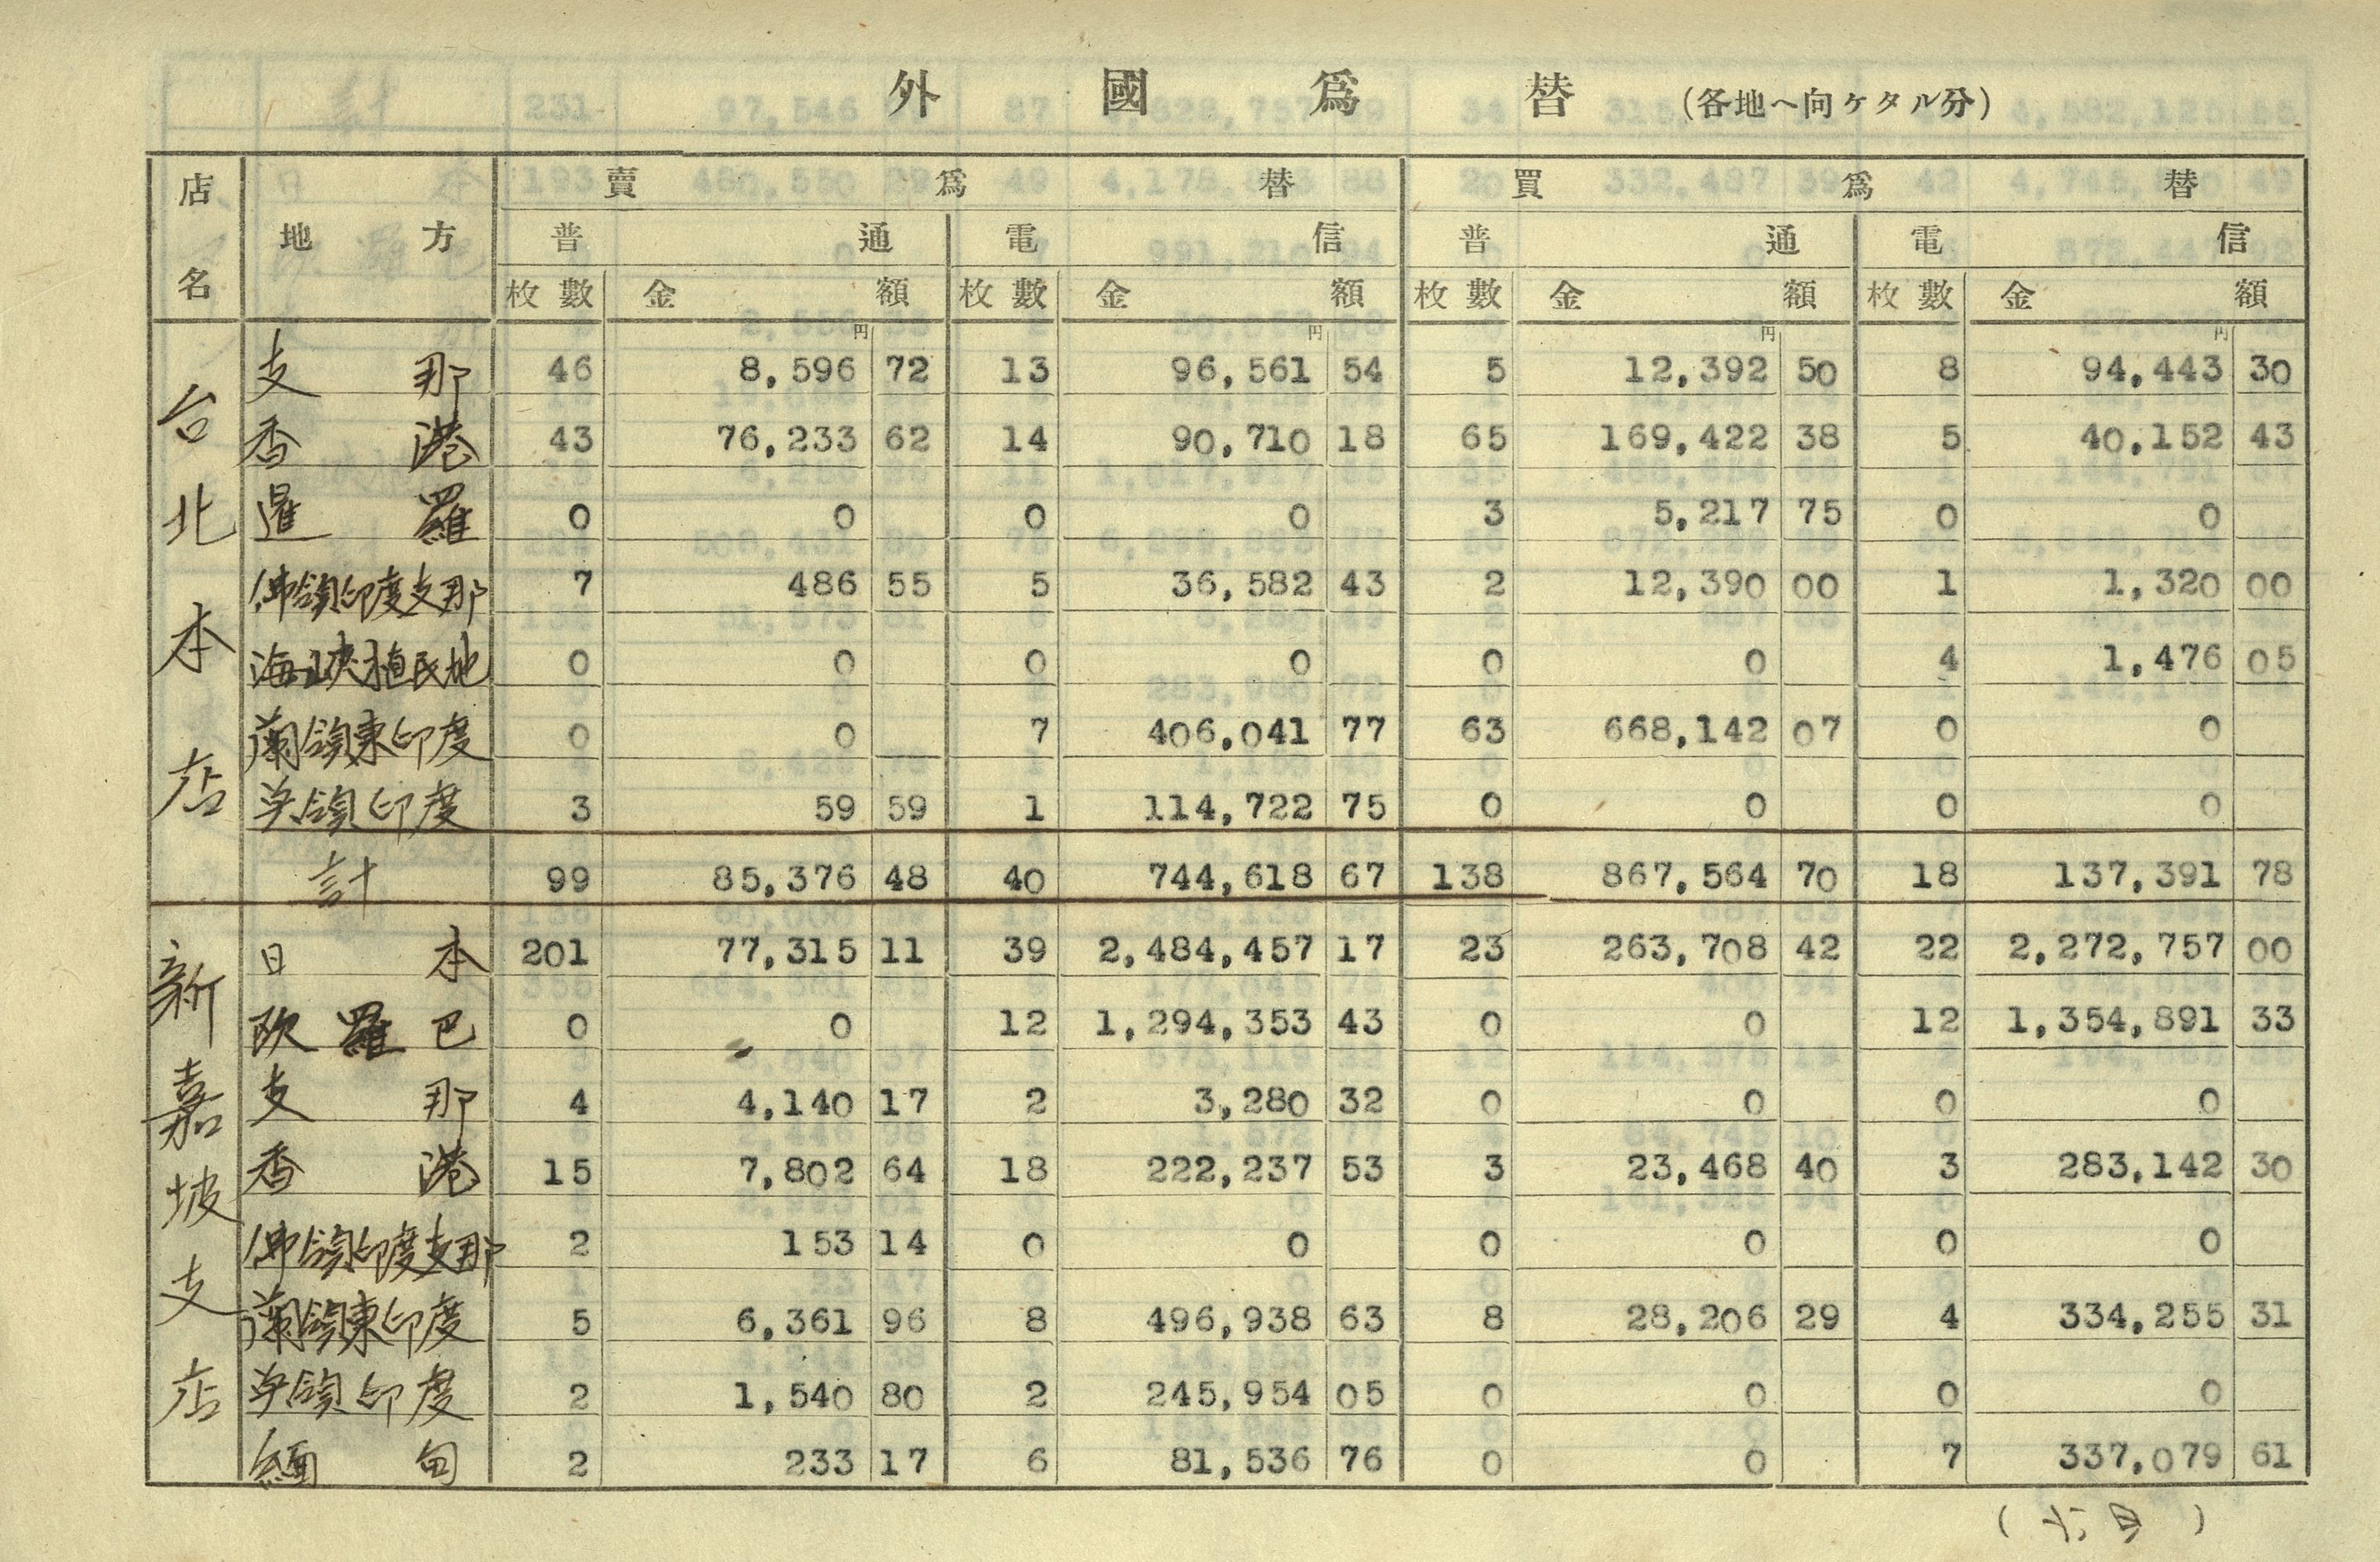 外國爲替 (各地ヘ向ケタル分)
店名 地方 賣爲替 買爲替
普通 電信 普通 電信
枚數 金額 枚數 金額 枚數 金額 枚數 金額
円 円 円 円
台北本店
支那 46 8,596 72 13 96,561 54 5 12,392 50 8 94,443 30
香港 43 76,233 62 14 90,710 18 65 169,422 38 5 40,152 43
暹羅 0 0 0 0 3 5,217 75 0 0
佛領印度支那 7 486 55 5 36,582 43 2 12,390 00 1 1,320 00
海峽植民地 0 0 0 0 0 0 4 1,476 05
蘭領東印度 0 0 7 406,041 77 63 668,142 07 0 0
英領印度 3 59 59 1 114,722 75 0 0 0 0
計 99 85,376 48 40 744,618 67 138 867,564 70 18 137,391 78
新嘉坡支店
日本 201 77,315 11 39 2,484,457 17 23 263,708 42 22 2,272,757 00
欧羅巴 0 0 12 1,294,353 43 0 0 12 1,354,891 33
支那 4 4,140 17 2 3,280 32 0 0 0 0
香港 15 7,802 64 18 222,237 53 3 23,468 40 3 283,142 30
佛領印度支那 2 153 14 0 0 0 0 0 0
蘭領東印度 5 6,361 96 8 496,938 63 8 28,206 29 4 334,255 31
英領印度 2 1,540 80 2 245,954 05 0 0 0 0
緬甸 2 233 17 6 81,536 76 0 0 7 337,079 61